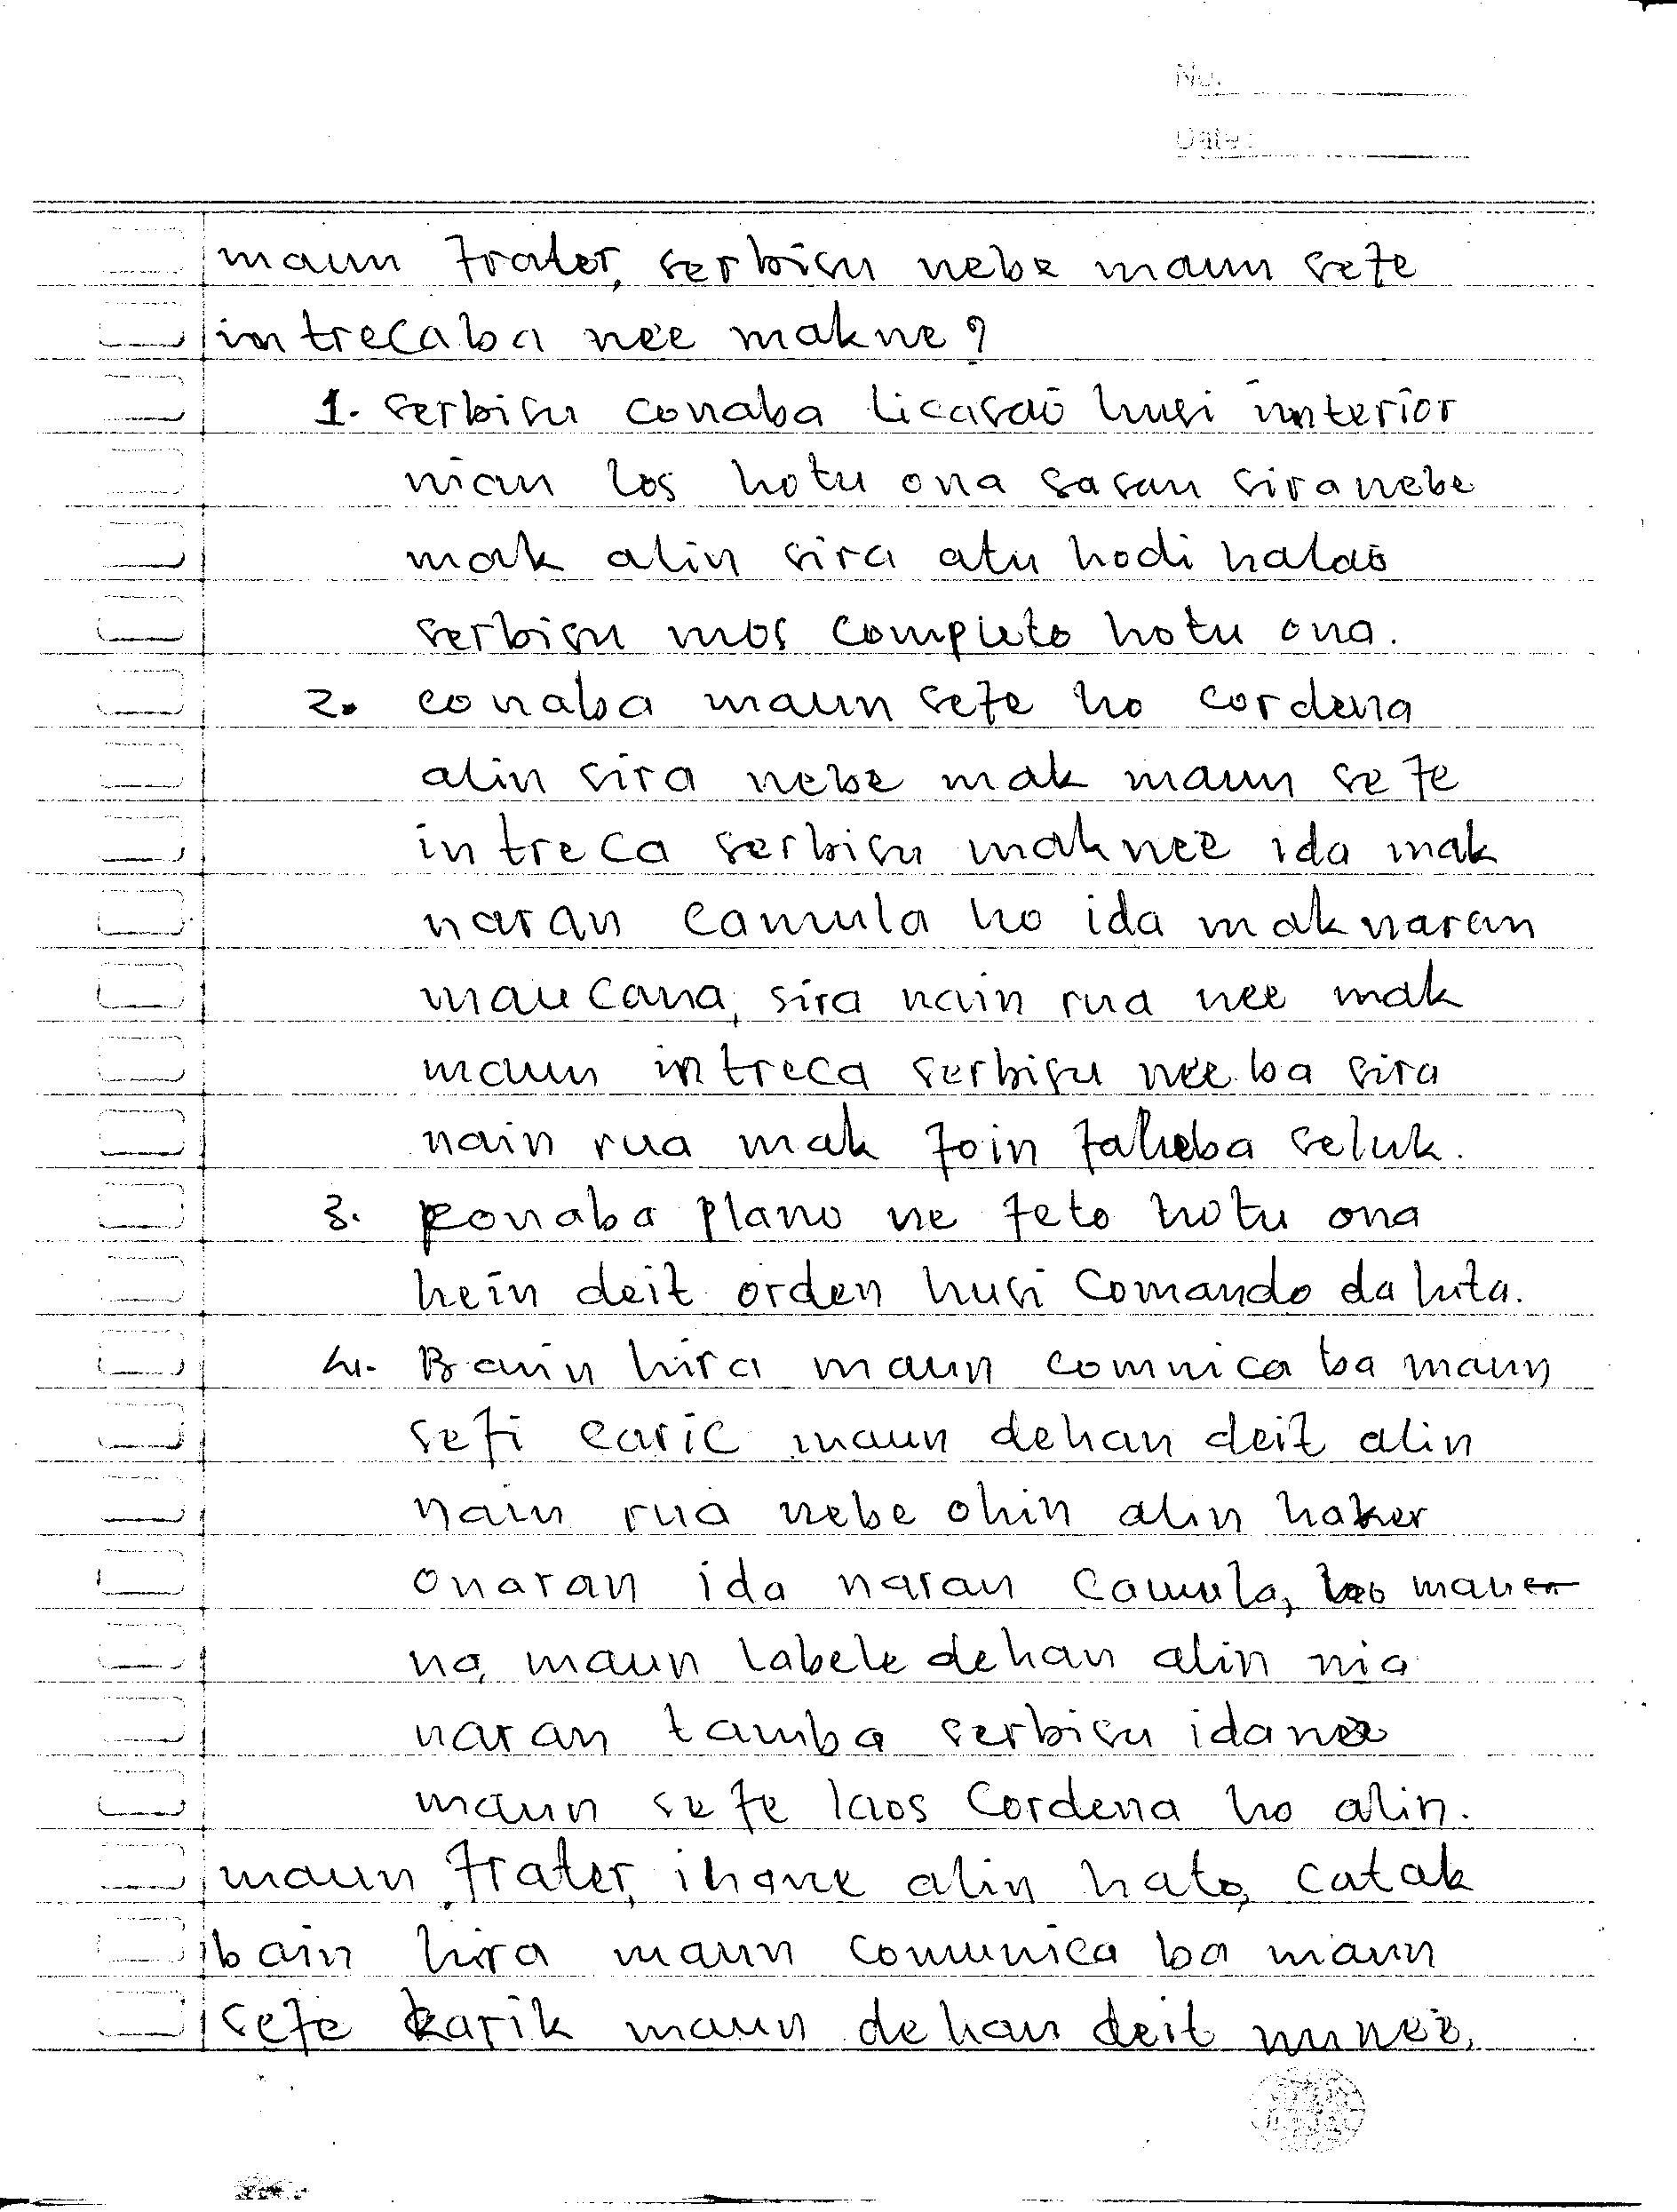 No.
Date:
maun frater, serbisu nebe maun sefe
intrecaba nee makne?
1. serbisu conaba licasaō husi interior
nian los hotu ona sasan siranebe
mak alin sira atu hodi halaō
serbisu mos completo hotu ona.
2. conaba maun sefe ho cordena
alin sira nebe mak maun sefe
intreca serbisu maknee ida mak
naran camula ho ida maknaran
maucana, sira nain rua nee mak
maun intreca serbisu nee ba sira
nain rua mak foin faheba seluk.
3. conaba plano ne feto hotu ona
hein deit orden husi Comando da luta.
4. Bain hira maun comnica ba maun
sefi caric maun dehan deit alin
nain rua nebe ohin alin haker
onaran ida naran Camula, mauea
na, maun labele dehan alin nia
naran tamba serbisu idanee
maun sefe laos Cordena ho alin.
maun frater, ihane alin hato, catak
bain hira maun comunica ba maun
sefe karik maun dehan deit nunee.